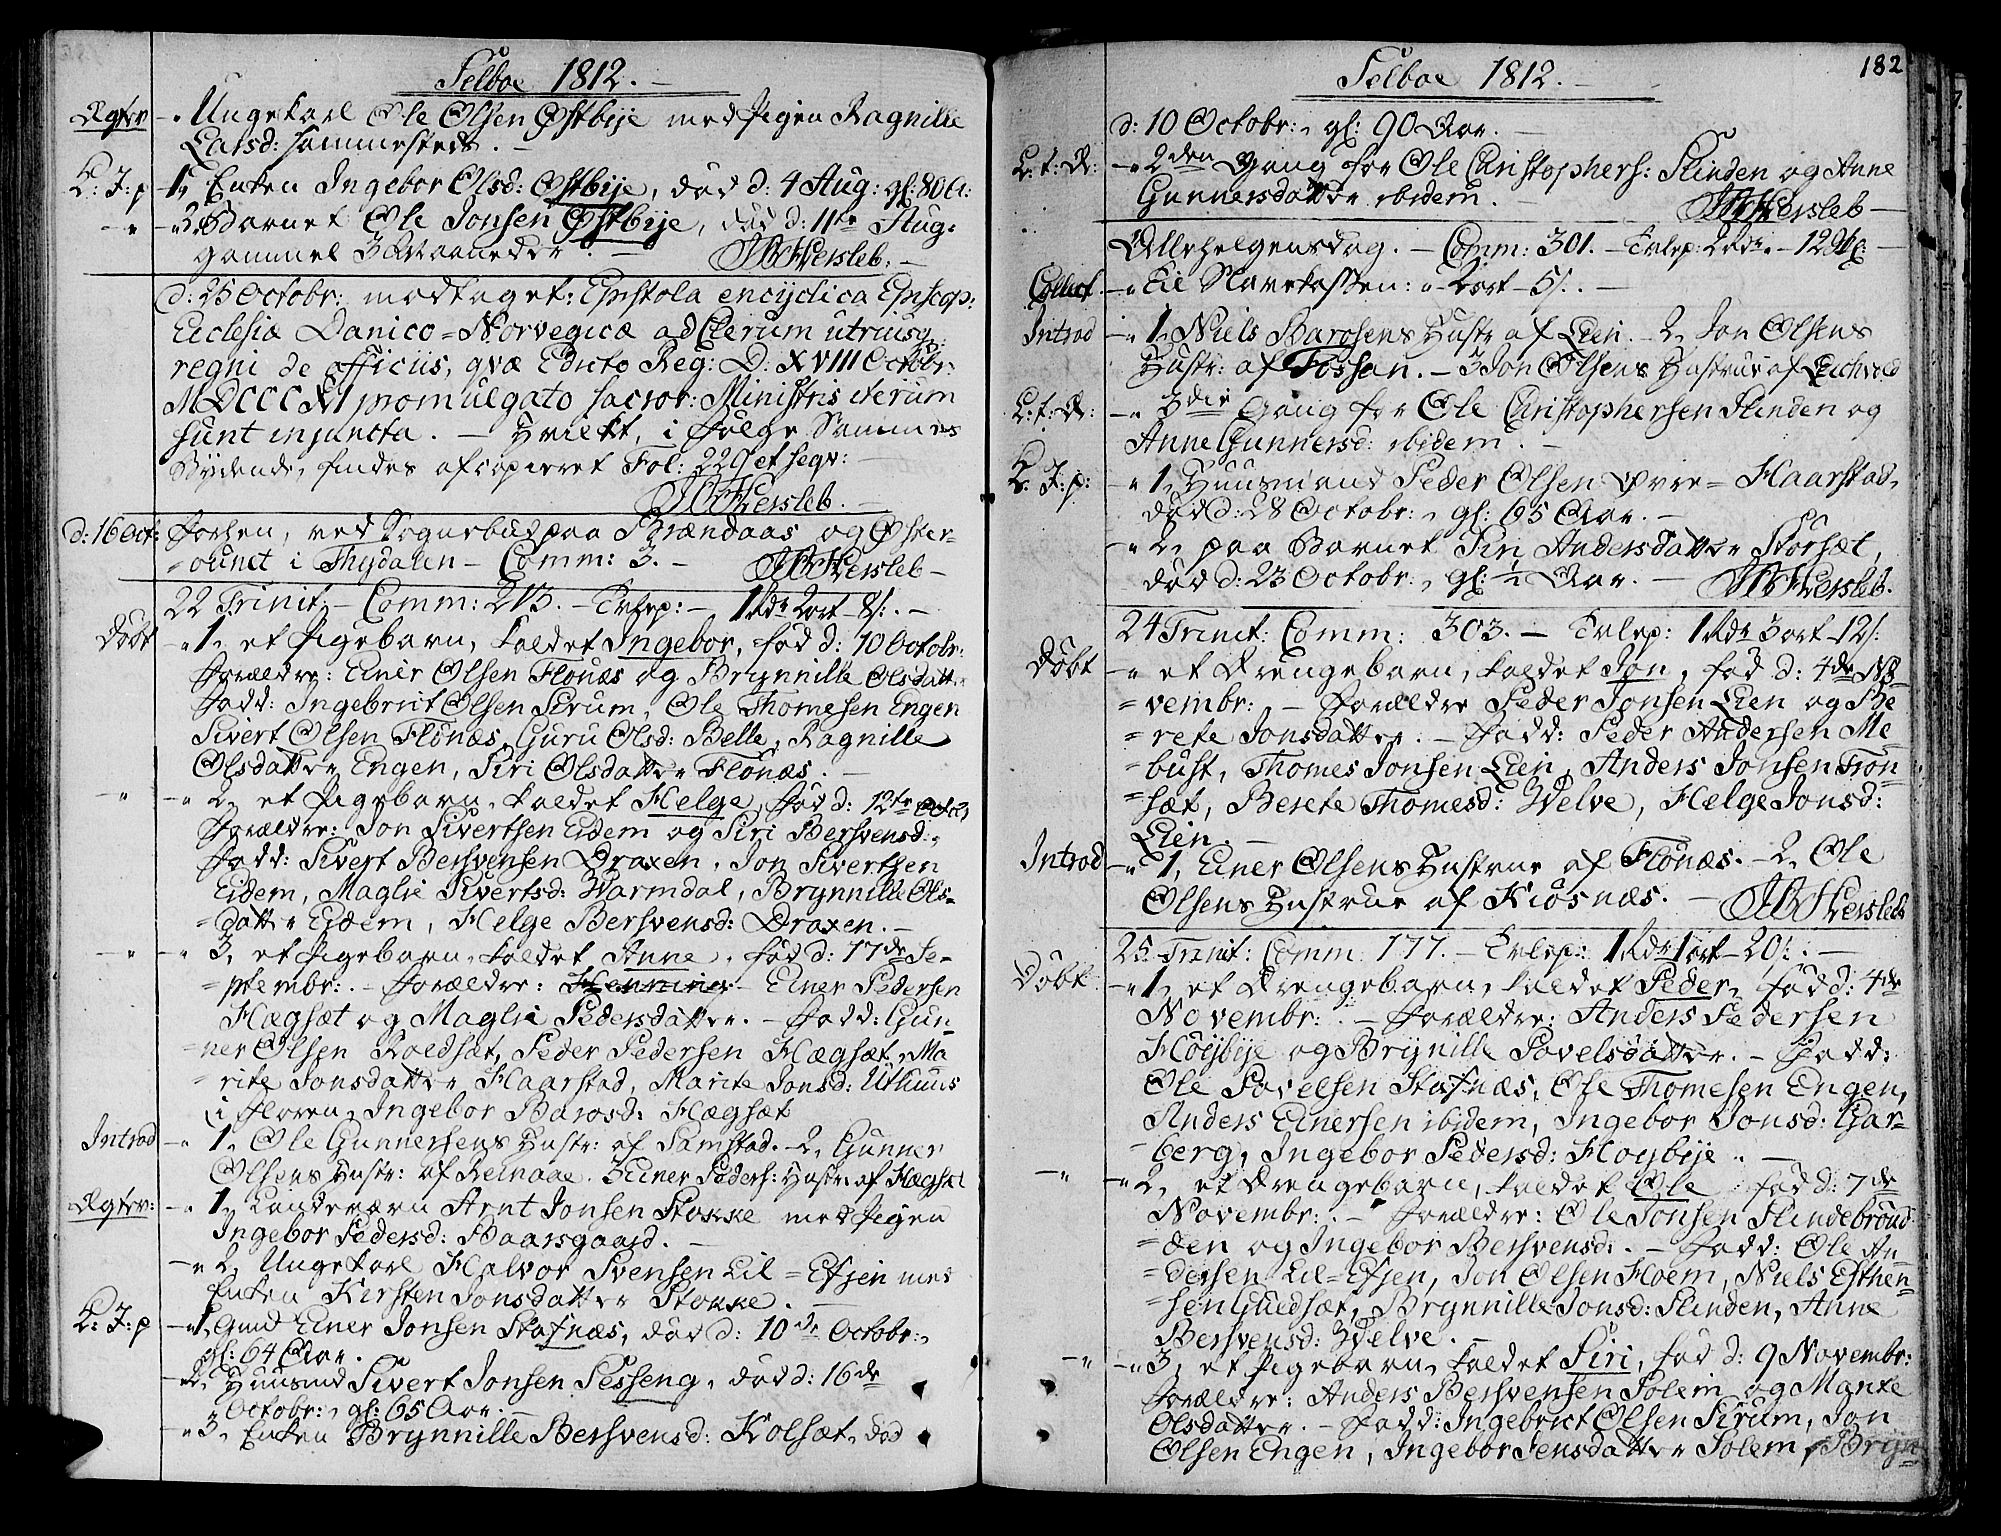 Selboe 1812.
Ægtev. Ungekarl Ole Olsen Østbije med Pigen Ragnille
Larsd: Hammersted.
L: J: p 1, Enken Ingebor Olsd: Østbije, død d: 4 Aug: gl: 80 A:
2, Barnet Ole Jonsen Østbije, død d: 11te Aug:
gammel 3 Maaneder. JBHersleb.
d: 25 Octobr: modtaget: Epistola encyclica Episcop:
Ecclesiæ Danico=Norvegicæ ad Clerum utriusq:
regni de officiis, qvæ Edicto Reg: D: XVIII Octobr:
MDCCCXI promulgato sacror: Ministris iterum
sunt injuncta. – Hvilket, i følge Sammes
Bydende, findes afcopieret Fol: 229 et seqv:
JBHersleb.
d: 16 Oct: Forhen, ved Sognebud paa Brændaas og Øster-
=ounet i Thydalen – Comm: 3. – JBHersleb
22 Trinit: – Comm: 213. – Tvlep: – 1 Rdr 2 ort – 8/.
Døbt 1, et Pigebarn, kaldet Ingebor, fød d: 10 Octobr:
Forældre: Einer Olsen Flønæs og Brynnille Olsdatt.
Fadd: Ingebrict Olsen Sirum, Ole Thomesen Engen
Sivert Olsen Flønæs, Guru Olsd: Belle, Ragnille
Olsdatter Engen, Siri Olsdatter Flønæs.
2, et Pigebarn, kaldet Helge, fød d: 12te Octo,
Forældre: Jon Sivertsen Eidem og Siri Bersvensd:
Fadd: Sivert Bersvensen Draxen, Jon Sivertsen
Eidem, Maglie Sivertsd: Warmdal, Brynnille Ols-
=datter Eidem, Helge Bersvensd: Draxen.
3, et Pigebarn, kaldet Anne, fød d: 17de Se-
=ptembr: – Forældre: Henning – Einer Pedersen
Hægsæt og Maglie Pedersdatter. – Fadd: Gun-
=ner Olsen Roldsæt, Peder Pedersen Hægsæt, Ma
=rite Jonsdatter Haarstad, Marite Jonsd: Uthuus
i Floren, Ingebor Barosd: Hægsæt
Introd 1, Ole Gunnersens Hustr: af Samstad. – 2, Gunner
Olsens Hustr: af Reinaae. 3 Einer Peders: Hustr: af Hægset
Ægtev: 1, Landeværn Arnt Jonsen Stokke med Pigen
Ingebor Pedersd: Baarsgaard.
2, Ungekarl Halvor Svensen Lil=Efjen med
Enken Kirsten Jonsdatter Stokke.
L: J: p 1, Gmd Einer Jonsen Stafnæs, død d: 10de Octobr:
gl: 64 Aar.
2, Huusmd Sivert Jonsen Sesseng, død d: 16de
Octobr: gl: 65 Aar.
3, Enken Brynnille Bersvensd: Kolsæt, død
Selboe 1812.
182
d: 10 Octobr: gl: 90 Aar.
L: t: Æ: 2den Gang for Ole Christophers: Slinden og Anne
Gunnersdatter ibidem. JBHersleb
Allehelgensdag. – Comm: 301. – Tvlep: 2 Rdr – 12 /:
Collect Til Slavekassen: 2 ort – 5/.
Introd 1, Niels Barosens Hustr af Lien. – 2, Jon Olsens
Hustr: af Fossan. – 3 Jon Olsens Hustrue af Lichvold
L: t: Æ: 3die Gang for Ole Christophersen Slinden og
Anne Gunnersd: ibidem.
L: J: p: 1, Huusmand Peder Olsen Øvre=Haarstad,
død d: 28 Octobr: gl: 65 Aar.
2, paa Barnet Siri Andersdatter Storsæt,
død d: 23 Octobr: gl: 1/4 Aar. – JBHersleb.
24 Trinit: Comm: 303. – Tvlep: 1 Rdr 3 ort – 12/:
Døbt et Drengebarn, kaldet Jon, fød d: 4de No
=vembr: – Forældre Peder Jonsen Lien og Be
=rete Jonsdatter. – Fadd: Peder Andersen Me=
=bust, Thomes Jonsen Lien, Anders Jonsen Trøn
=sæt, Berete Thomesd: Welve, Helge Jonsd:
Lien.
Introd 1, Einer Olsens Hustrue af Flønæs. – 2, Ole
Olsens Hustrue af Kiøsnæs. JBHersleb
25 Trinit: Comm: 177. – Tvlep: 1 Rdr 1 ort – 20/.
Døbt 1, et Drengebarn, kaldet Peder, fød d: 4de
Novembr: – Forældre: Anders Pedersen
Høijbije og Brynille Povelsdatter. – Fadd:
Ole Povelsen Stafnæs, Ole Thomesen Engen,
Anders Einersen ibidem, Ingebor Jonsd: Gar-
berg, Ingebor Pedersd: Høijbije.
2, et Drengebarn, kaldet Ole fød d: 7de
Novembr: – Forældre: Ole Jonsen Slindebrønd
=den og Ingebor Bersvensd: – Fadd: Ole An
=dersen Lil=Efjen, Jon Olsen Hoem, Niels Esthen-
=sen Guldsæt, Brynnille Jonsd: Slinden, Anne
Bersvensd: Welve.
3, et Pigebarn, kaldet Siri, fød d: 9 Novembr:
Forældre: Anders Bersvensen Solem og Marite
Olsdatter. – Fadd: Ingebrict Olsen Sirum, Jon
Olsen Engen, Ingebor Jensdatter Solem, Bryn=